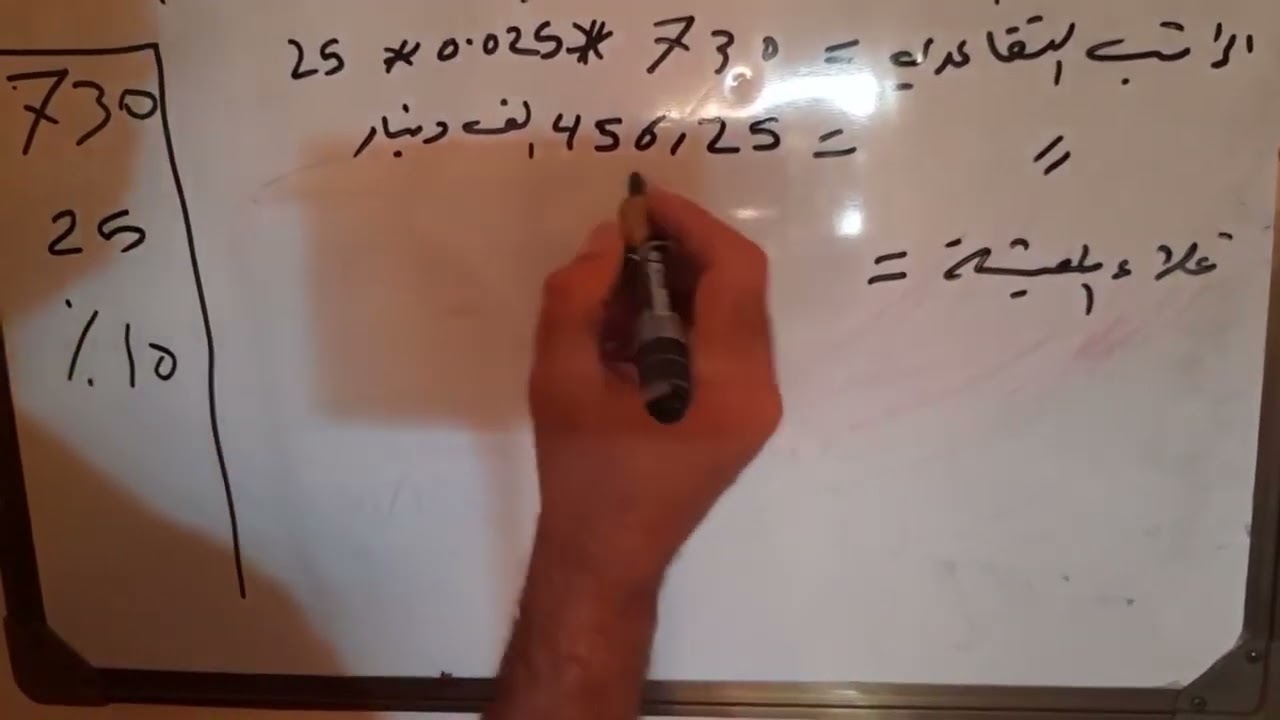 الراتب التقاعدي = 730 * 0.025 * 25
〃 = 456,25 الف دينار
غلاء المعيشة =
730
25
% 10